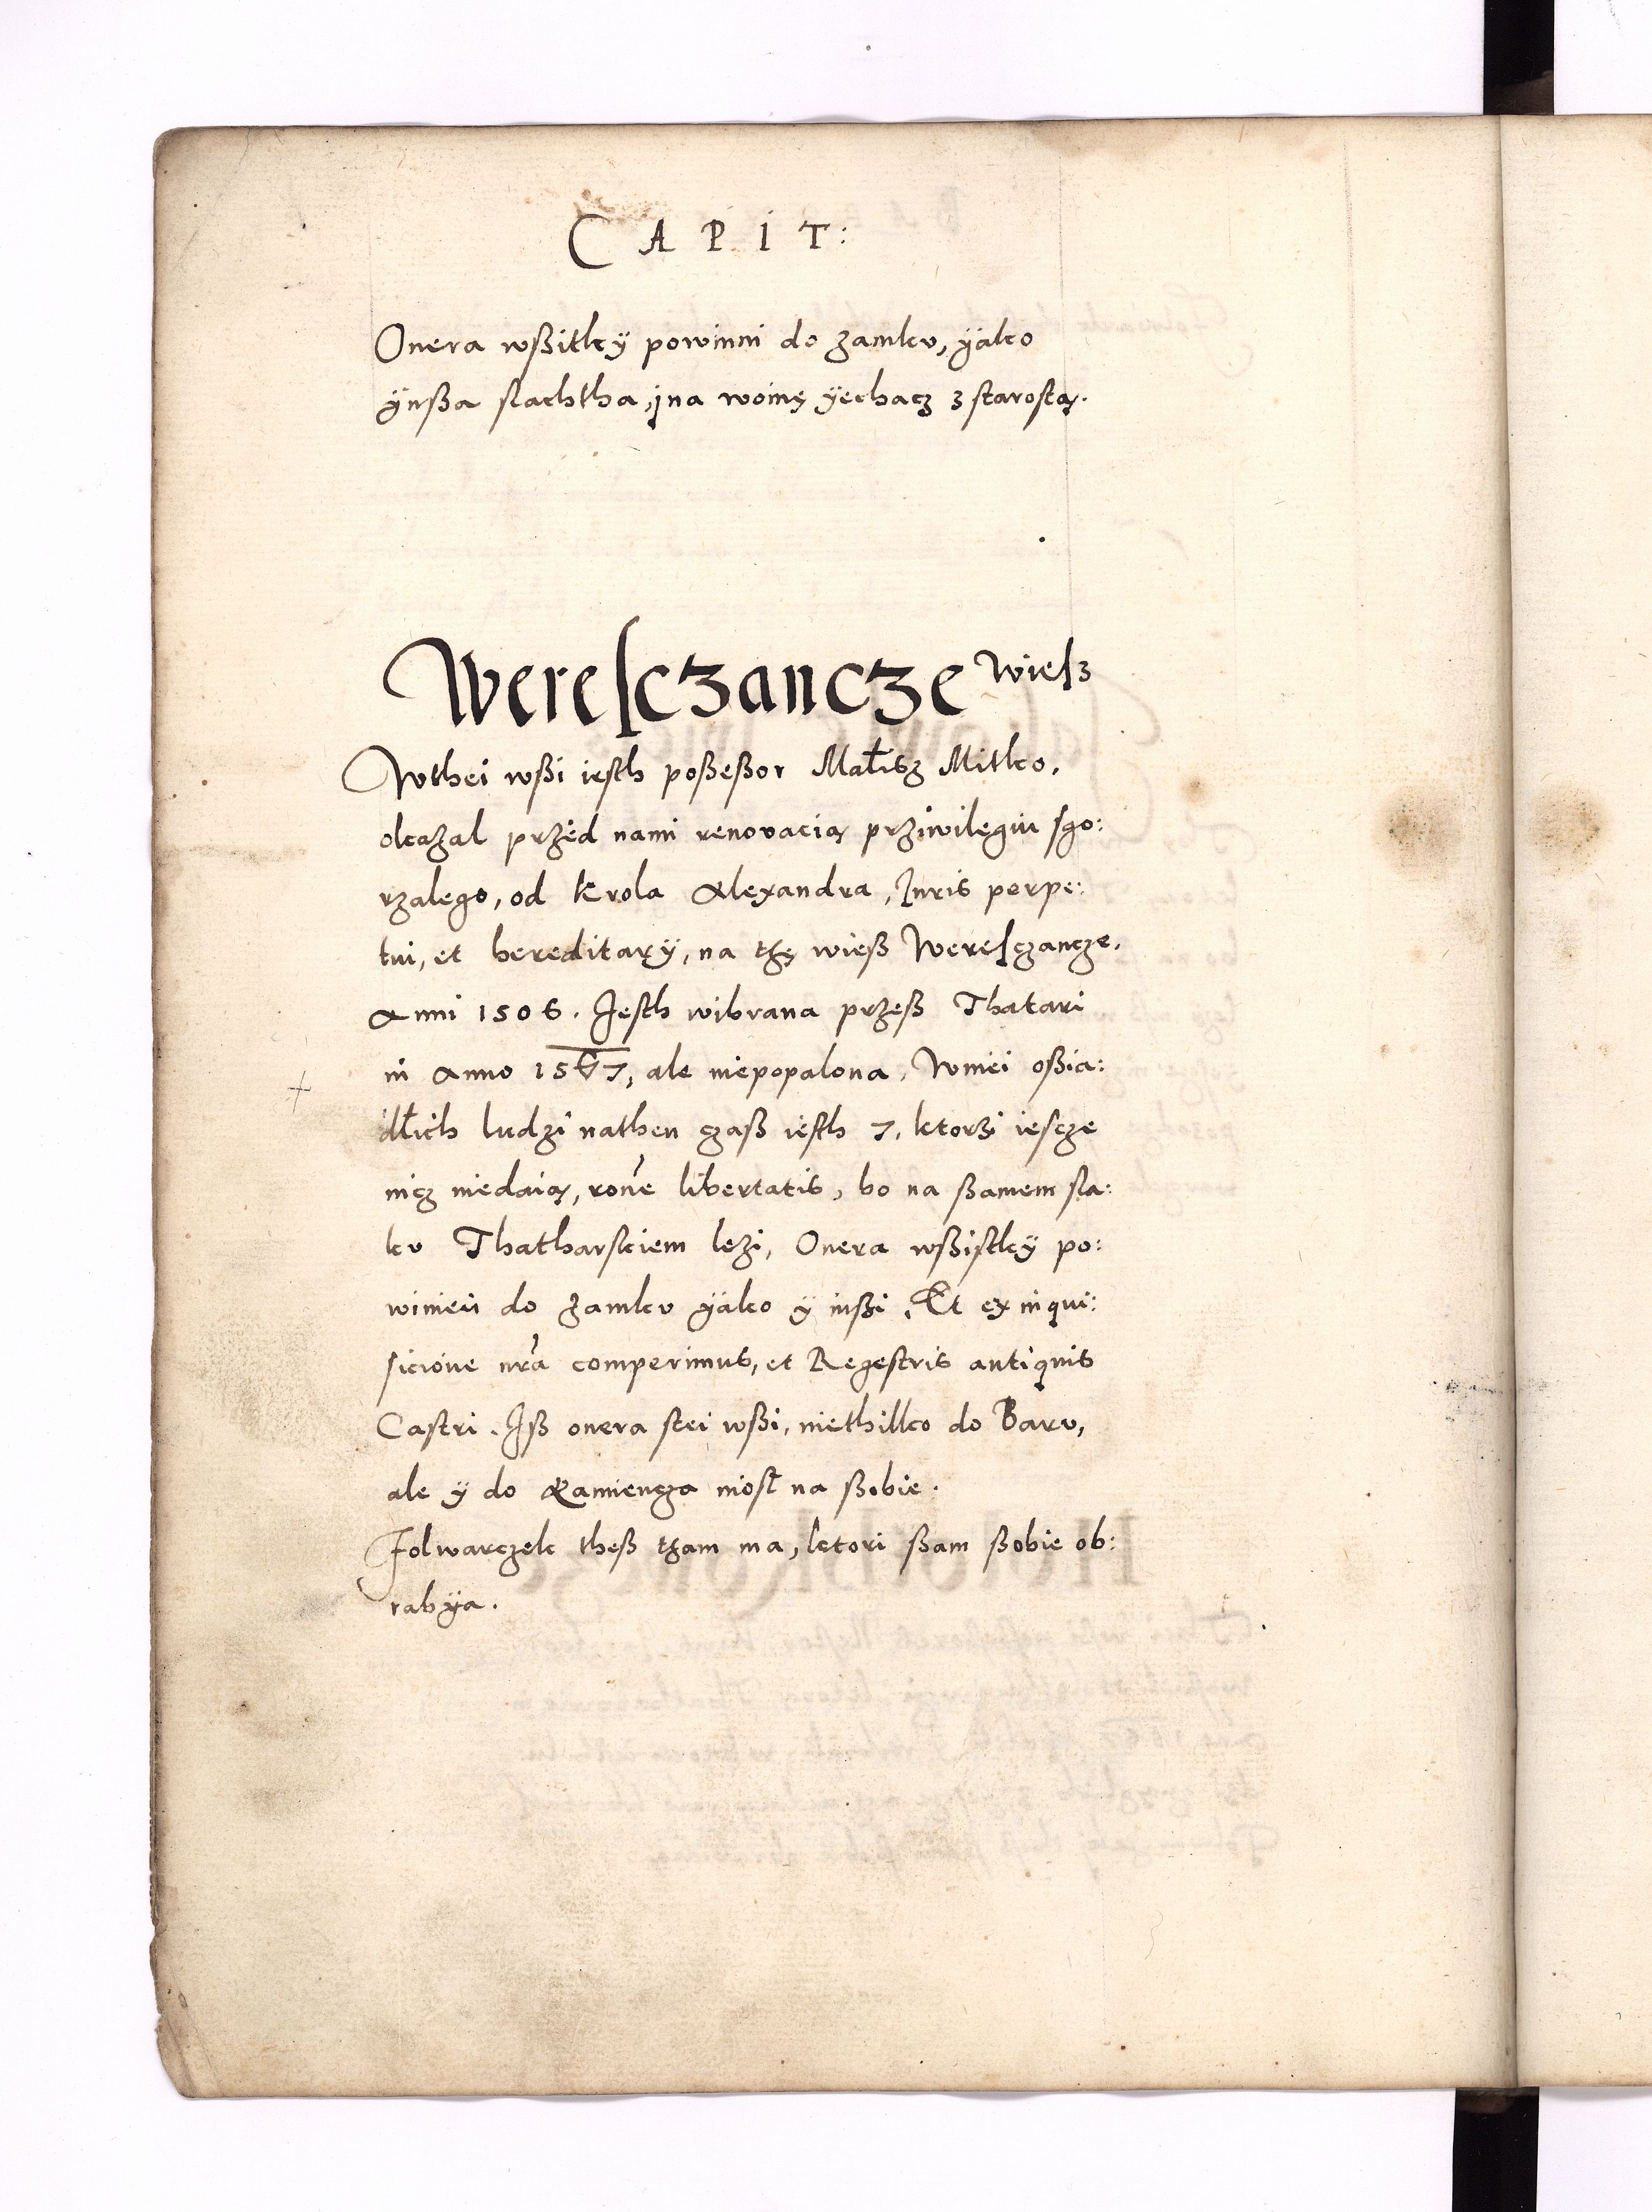 CAPIT:
Onera wßitky powinni do zamku, ÿako
ÿnßa slachtha, j na woinę ÿechacz z starostą.
Weresczancze wiesz
Wthei wßi iesth poßeßor Małisz Mitko,
okazal przed nami renovacią prziwilegiu sgo:
rzalego, od krola Alexandra, Juris perpe:
tui, et hereditarÿ, na thę wieß Weresczancze.
Anni 1506. Jesth wibrana przeß Thatari
in Anno 1567, ale niepopalona, Wniei oßia:
dłich ludzi nathen czaß iesth 7, ktorzi iescze
nicz niedaią, rone libertatis, bo na ßamem sla:
ku Thatharskiem lezi, Onera wßistkÿ po:
winien do zamku ÿako ÿ inßi. Et ex inqui:
sicione nra comperimus, et Regestris antiquis
Castri. Jß onera stei wßi, niethilko do Baru,
ale ÿ do Kamiencza niosł na ßobie.
Folwarczek theß tham ma, ktori ßam ßobie ob:
rabÿa.